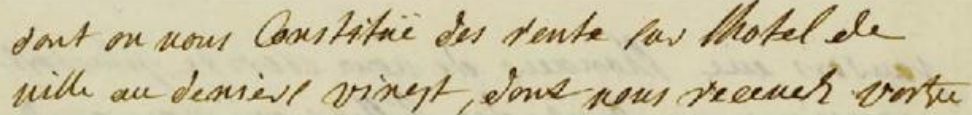 dont on nous Constituë des rente sur lhotel de
ville au deniere vingt, dont nous recevez vostre